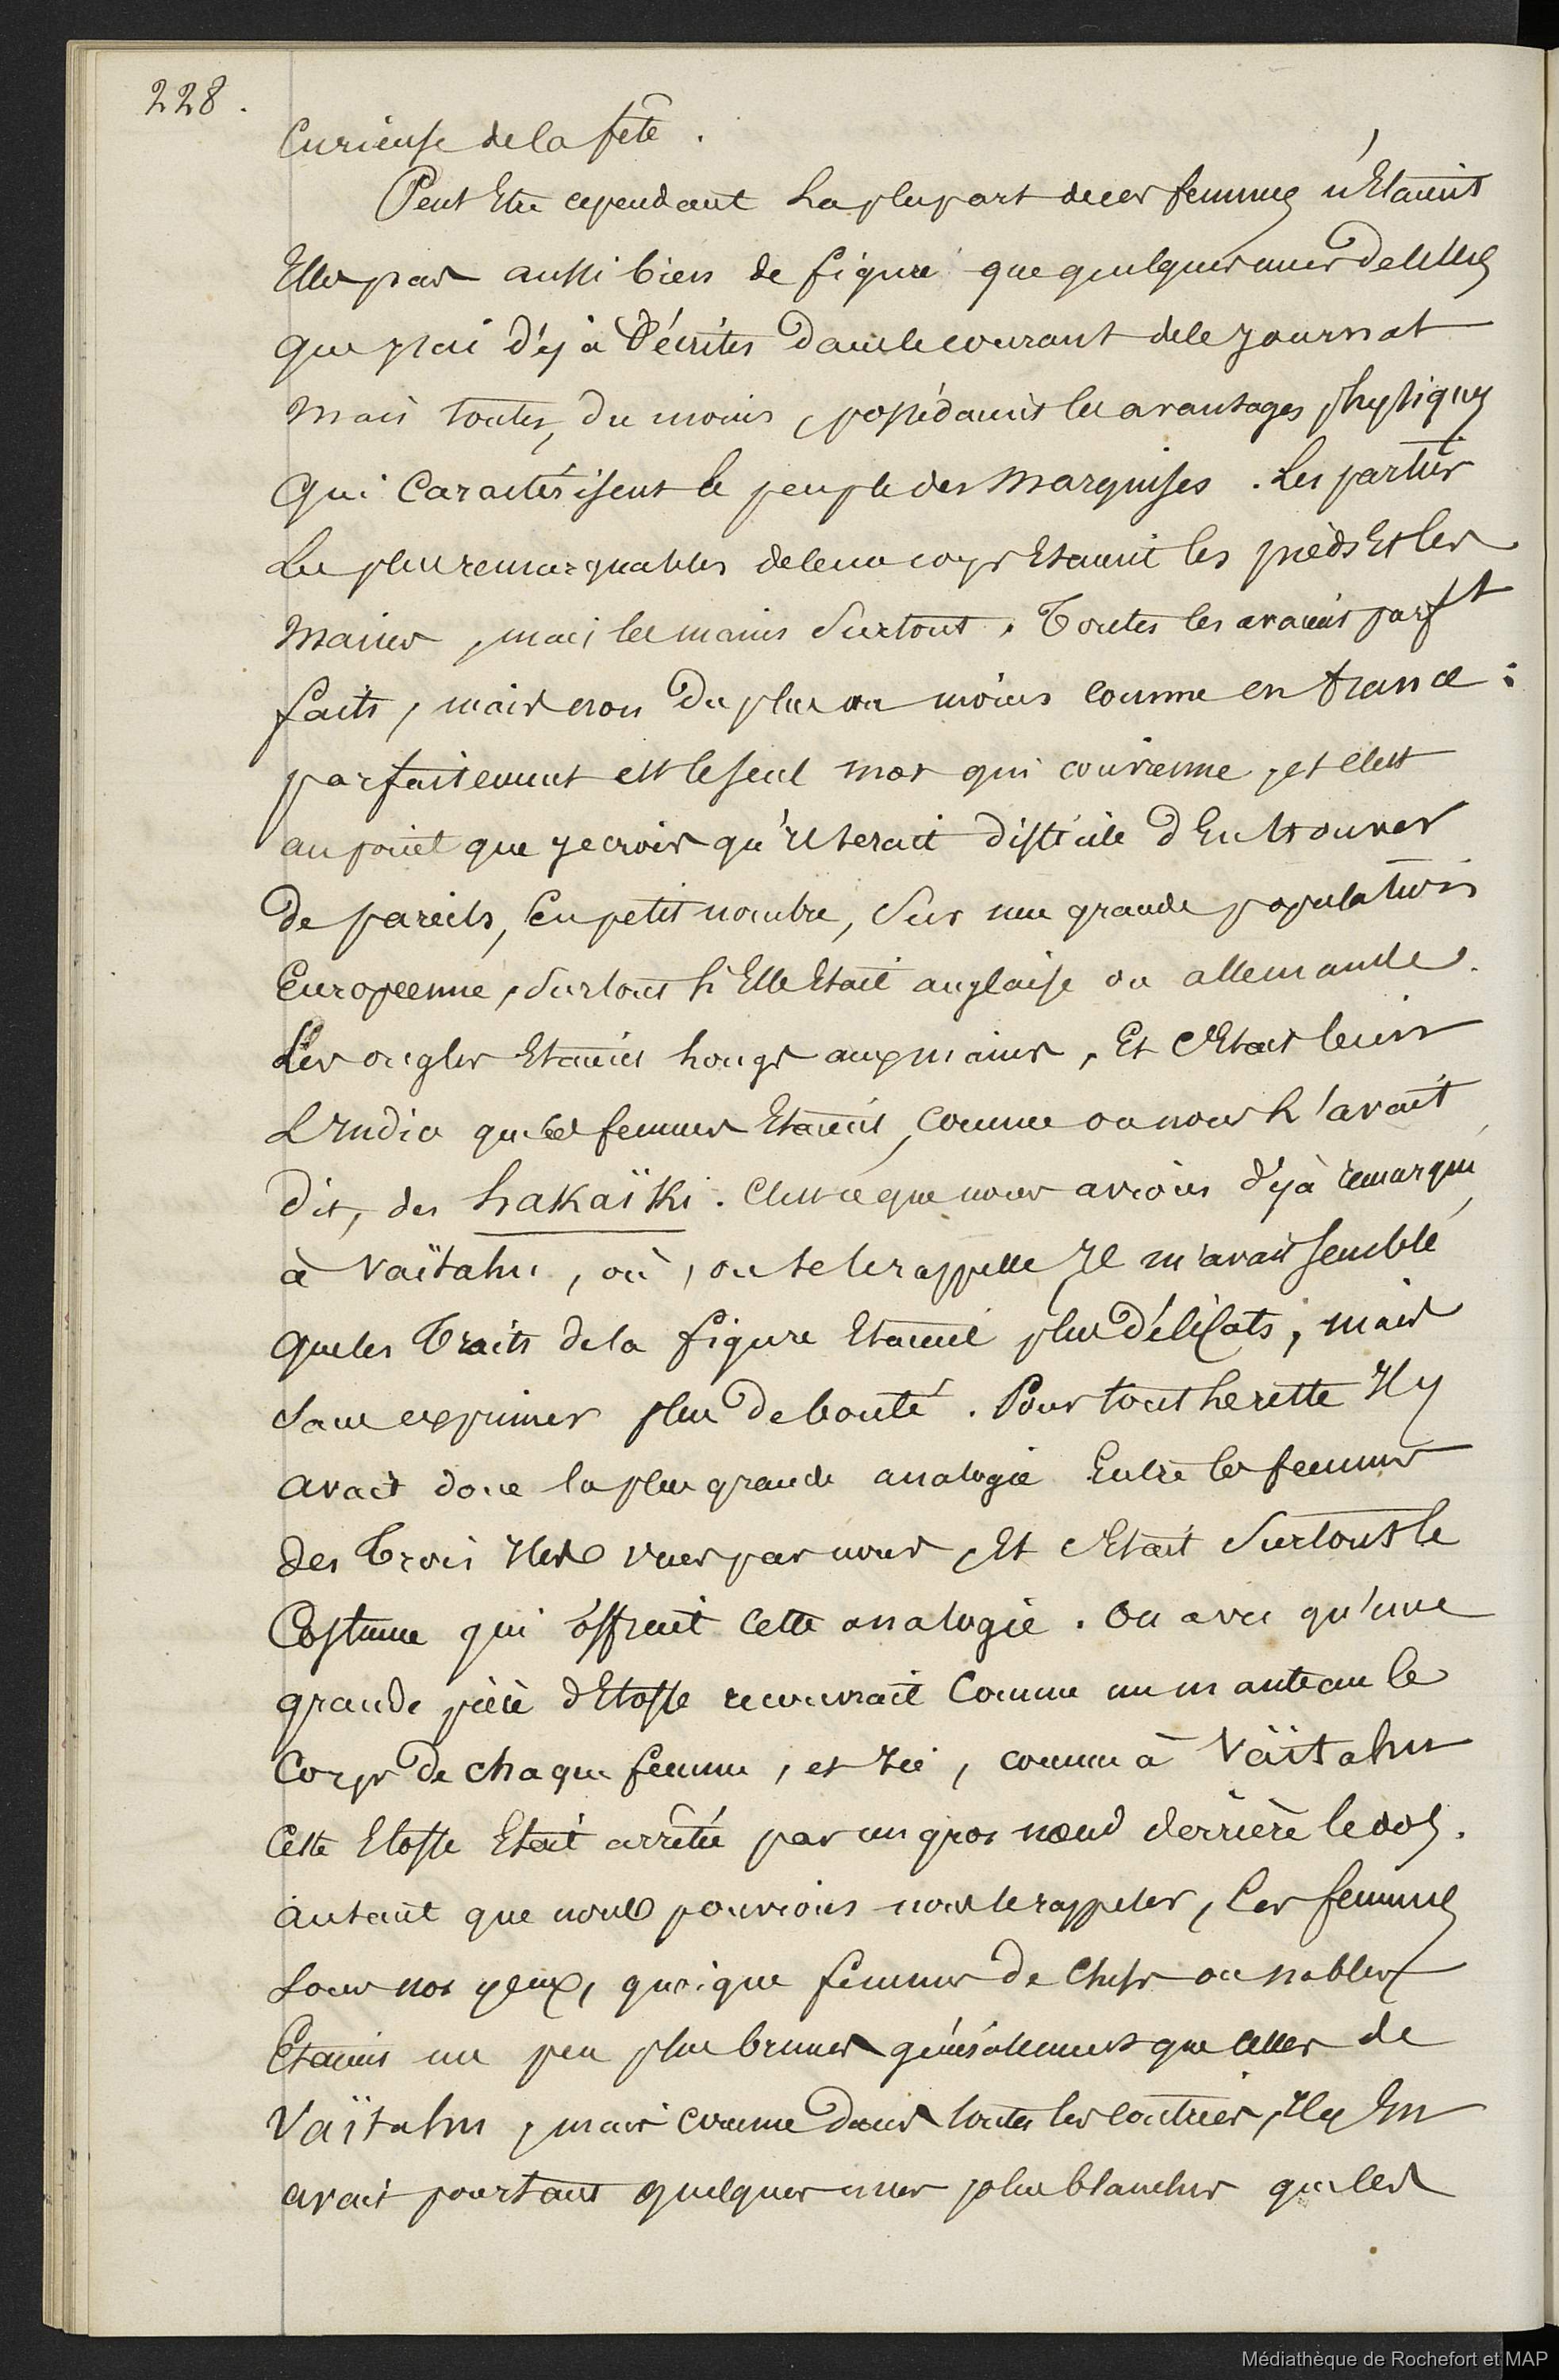 228.
Curieuse de la fête.
Peut Etre cependant La plupart de ces femmes n'Etaient
Elles pas aussi bien de figure que quelques unes de celles
que j'ai déjà Décrites Dans le courant de ce journal
mais toutes, du moins, possédaient les avantages physiques
Qui Caractérisent le peuple des Marquises. Les parties
Les plus remarquables de leur corps Etaient les pieds Et les
Mains, mais les mains Surtout. Toutes les avaient parft
faits, mais non Du plus ou moins comme en france :
parfaitement est le seul mot qui convienne, et c'est
au point que je crois qu'il serait difficile d'En trouver
De pareils, En petit nombre, Sur une grande population
Européenne, Surtout si Elle Etait anglaise ou allemande.
Les ongles Etaient longs aux mains, Et c'Etait bien
L'Indice que ces femmes Etaient, comme on nous l'avait
dit, des hakaïki. C'est ce que nous avions déjà remarqué
à Vaïtahu, où, on se le rappelle Il m'avait semblé
que les Traits de la figure Etaient plus Délicats, mais
Sans exprimer plus De bonté. Pour tout le reste Il y
avait donc la plus grande analogie Entre les femmes
des Trois Iles vues par nous, Et c'Etait Surtout le
Costume qui offrait cette analogie. On a vu qu'une
grande pièce d'Etoffe recouvrait Comme un manteau le
Corps De chaque femme, et Ici, comme à Vaïtahu
Cette Etoffe Etait arrêtée par un gros nœud derrière le dos.
autant que nous pouvions nous le rappeler, les femmes
Sous nos yeux, quoique femmes De Chefs ou nobles
Etaient un peu plus brunes généralement que celles de
Vaïtahu, mais comme Dans toutes les contrées, Il y En
avait pourtant quelques unes plus blanches que les
Médiathèque de Rochefort et MAP